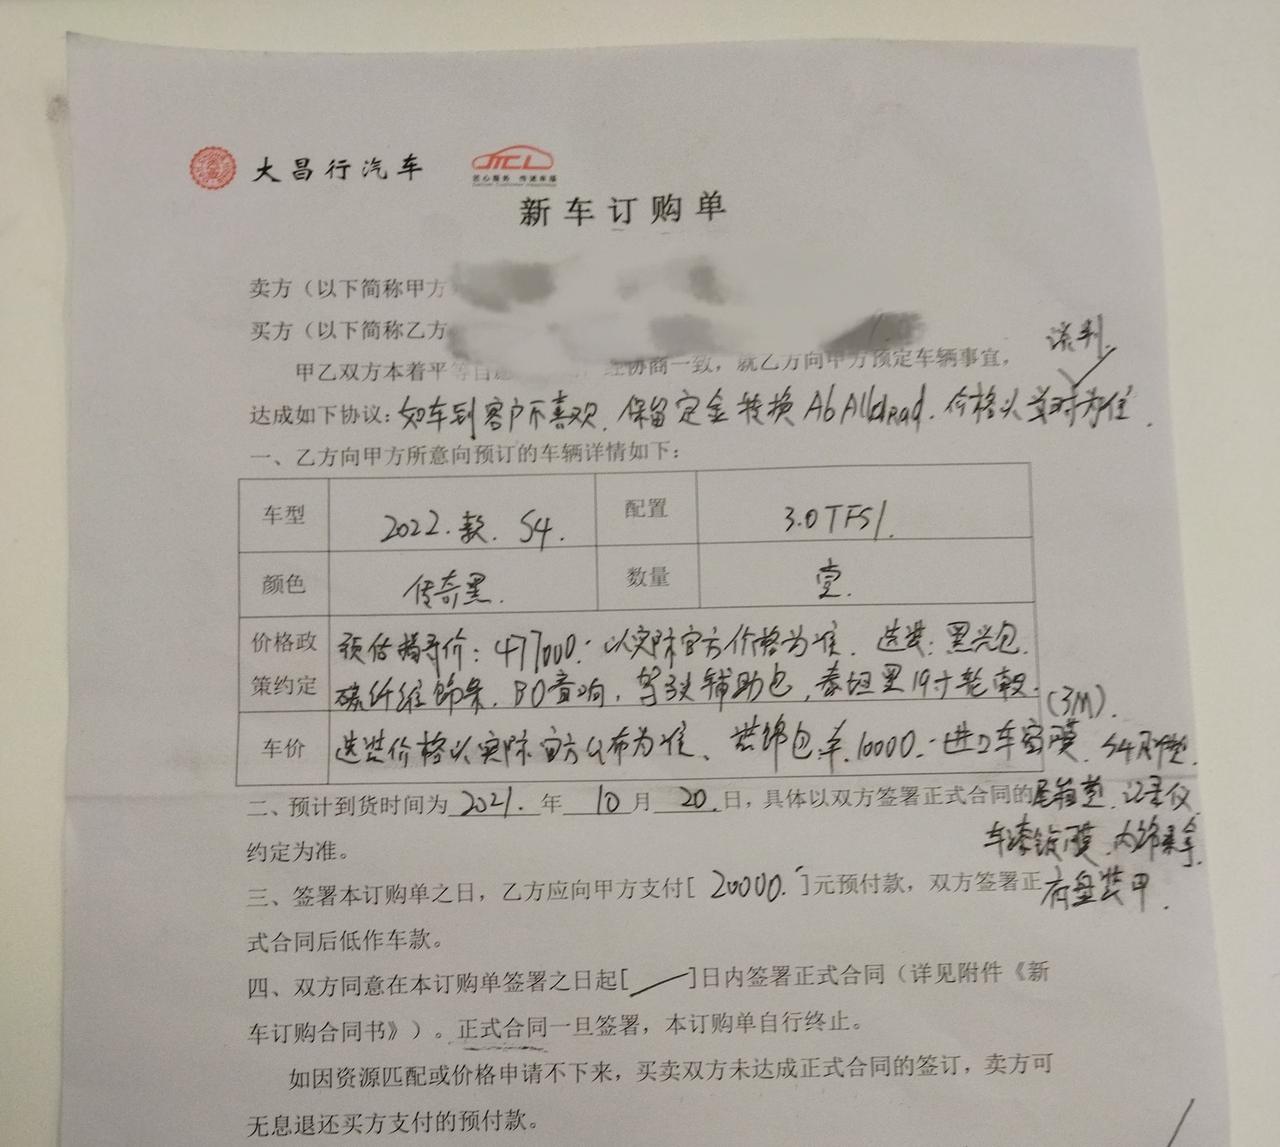 大昌行汽车
匠心服务 传递幸福
新车订购单
卖方（以下简称甲方
买方（以下简称乙方
谈判
甲乙双方本着平等自愿 经协商一致，就乙方向甲方预定车辆事宜，
达成如下协议：如车到客户不喜欢，保留定金转换A6 Allroad，价格以当时为准.
一、乙方向甲方所意向预订的车辆详情如下：
车型 2022.款. S4. 配置 3.0TFSI.
颜色 传奇黑. 数量 壹.
价格政 预估指导价：477000. 以实际官方价格为准. 选装：黑兴包.
策约定 碳纤维饰条，BO音响，驾驶辅助包，泰坦黑19寸轮毂.
(3M).
车价 选装价格以实际官方公布为准、装饰包车.10000. 进口车窗膜. S4
二、预计到货时间为2021.年10月20.日，具体以双方签署正式合同的 尾箱垫.记录仪
约定为准。 车漆镀膜.内饰
三、签署本订购单之日，乙方应向甲方支付[ 20000. ]元预付款，双方签署正 底盘装甲.
式合同后低作车款。
四、双方同意在本订购单签署之日起[ / ]日内签署正式合同（详见附件《新
车订购合同书》）。正式合同一旦签署，本订购单自行终止。
如因资源匹配或价格申请不下来，买卖双方未达成正式合同的签订，卖方可
无息退还买方支付的预付款。